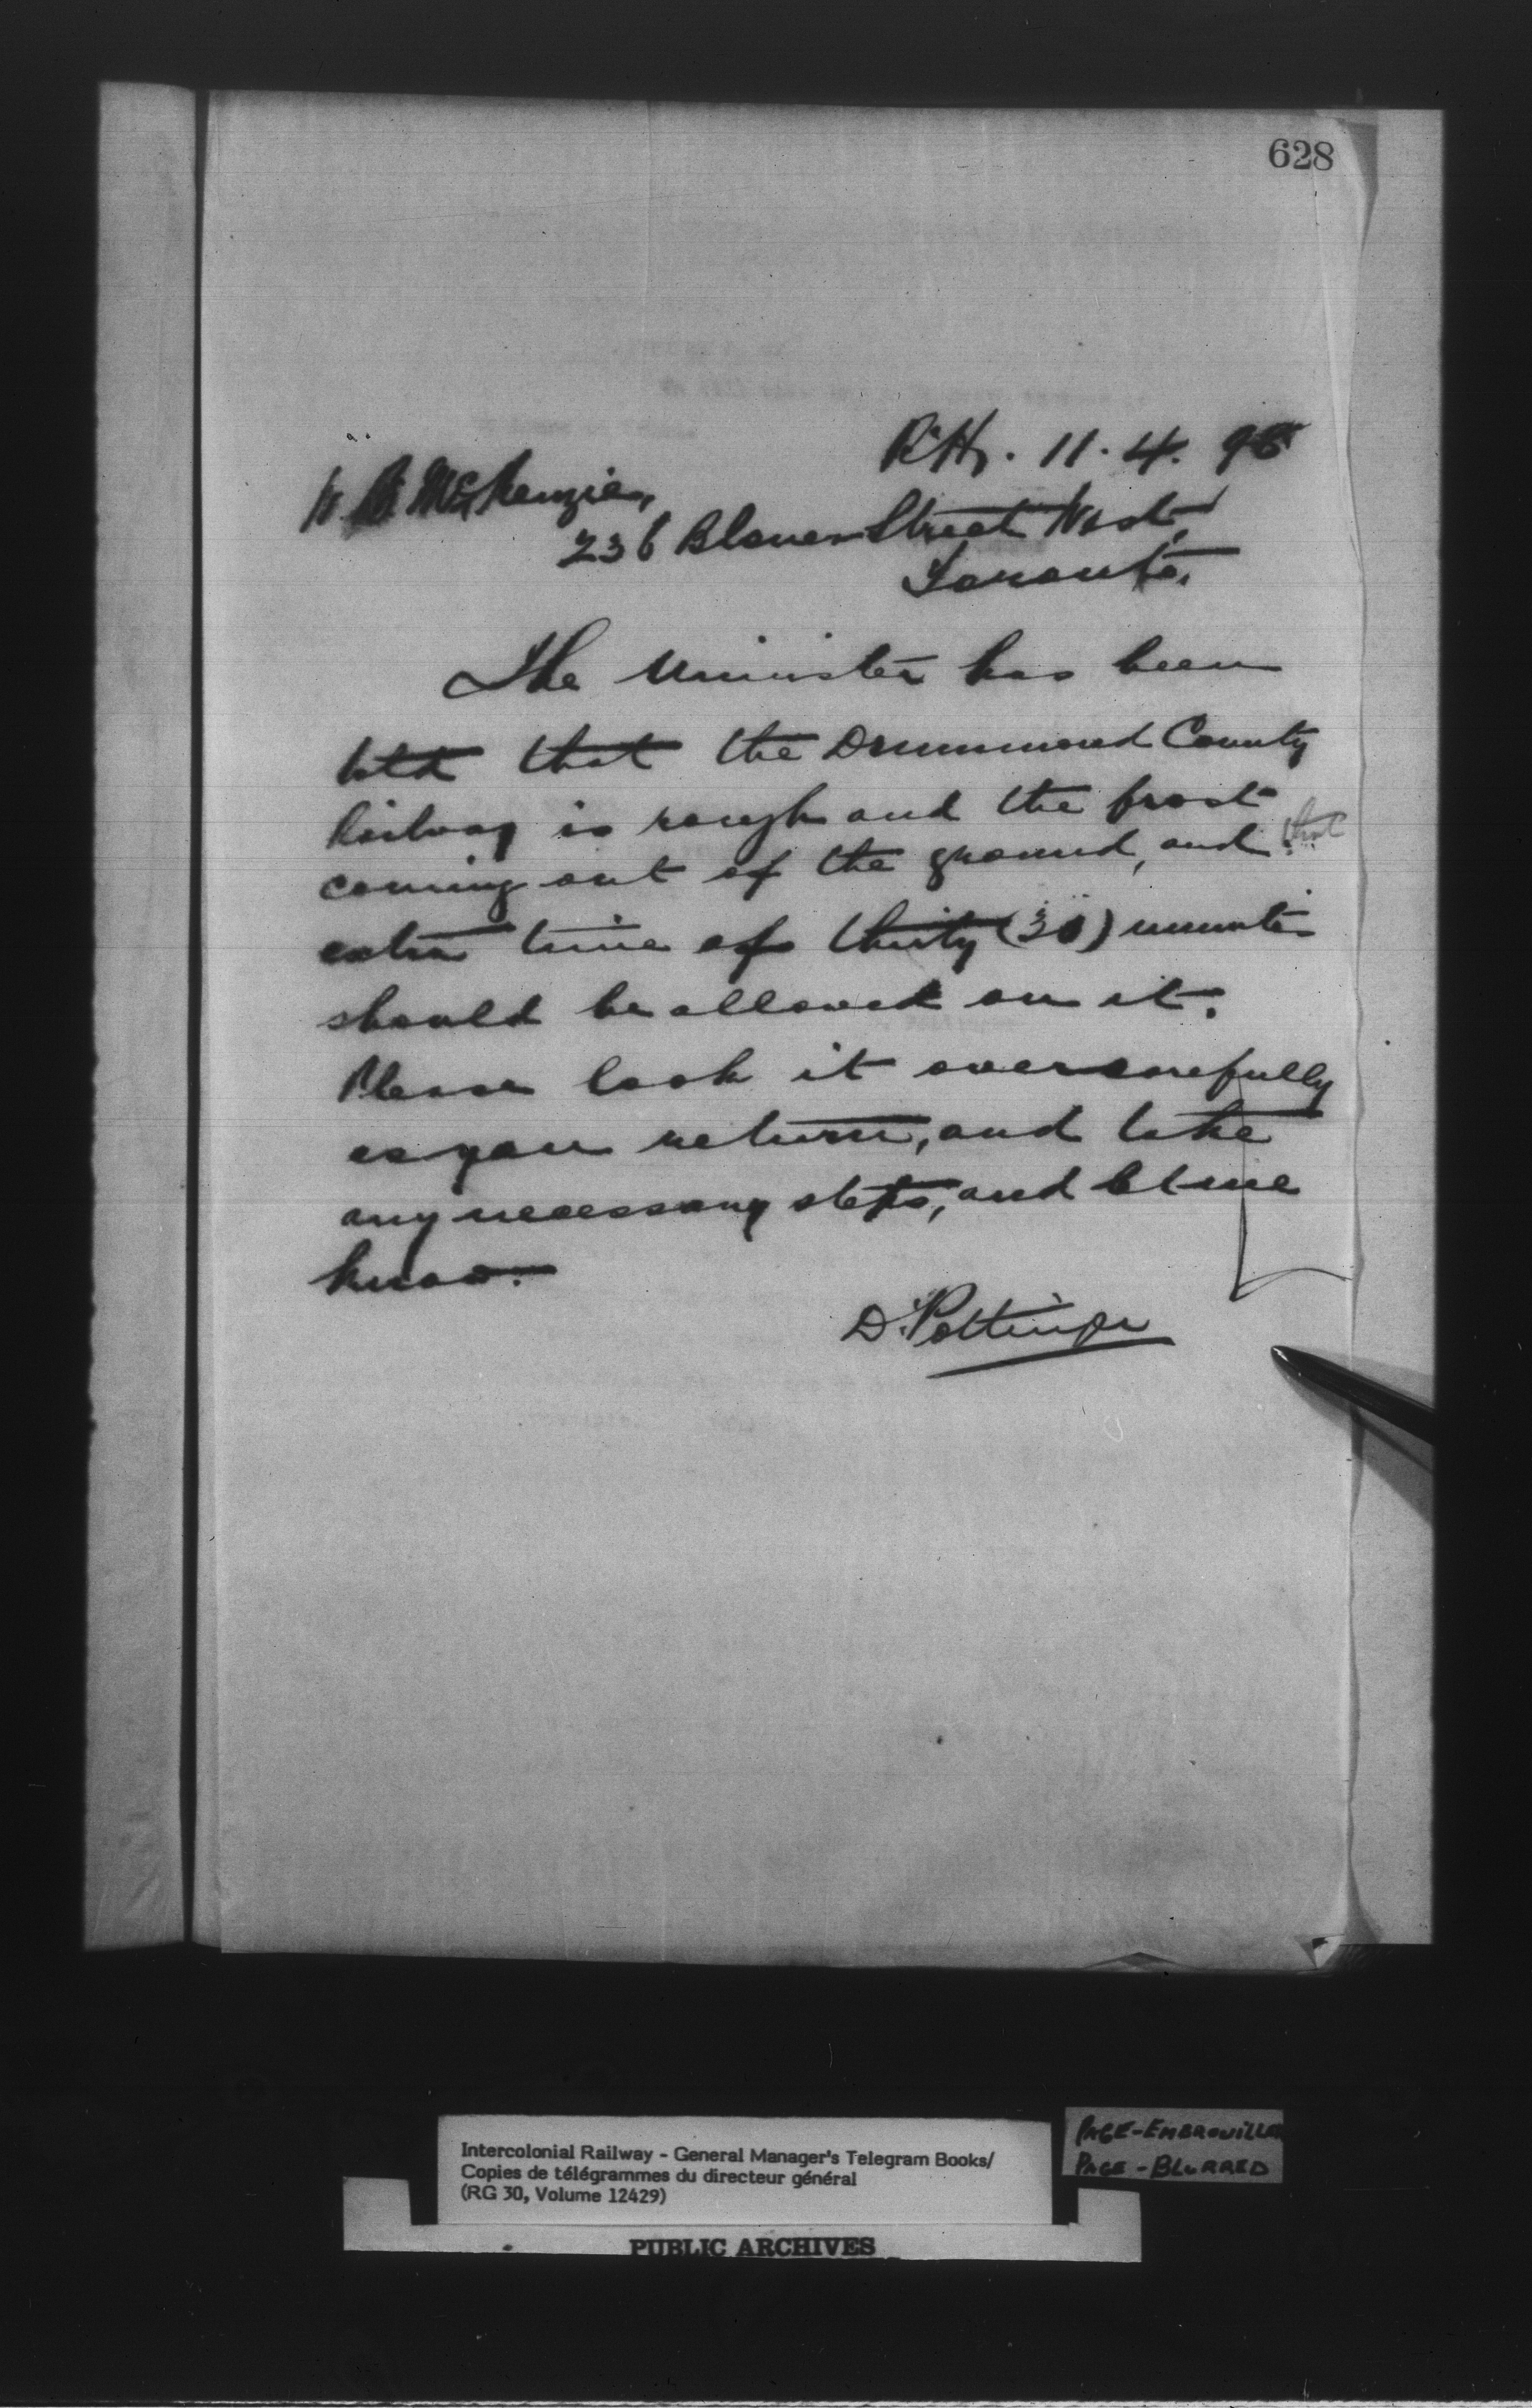 628
11. 4. 98
W. B. McKenzie,
236 Bloor Street West,
Toronto.
The Minister has been
told that the Drummond County
Railway is rough and the frost
coming out of the ground, and that
extra time of thirty (30) minutes
should be allowed on it.
Please look it over carefully
as you return, and take
any necessary steps, and let me
know.
D. Pottinger
Intercolonial Railway - General Manager's Telegram Books/
Copies de télégrammes du directeur général
(RG 30, Volume 12429)
PAGE-EMBROUILLER
PAGE-BLURRED
PUBLIC ARCHIVES